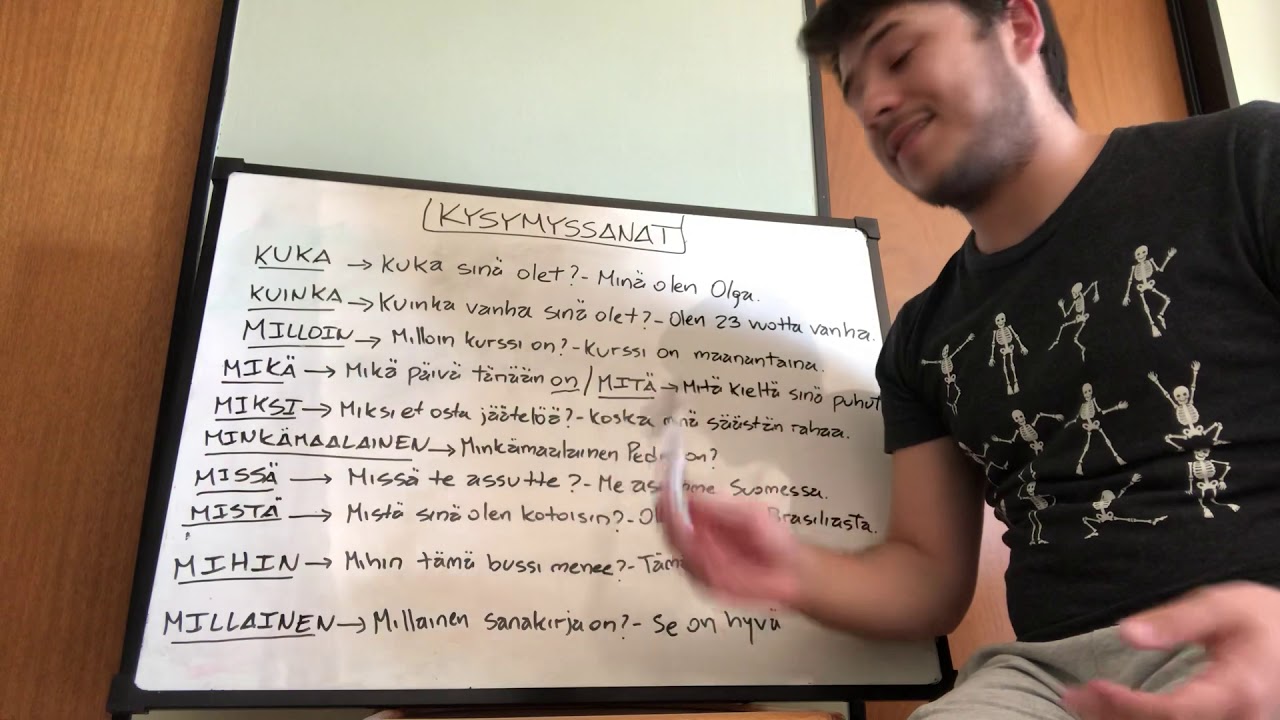 KYSYMYSSANAT
KUKA → Kuka sinä olet? - Minä olen Olga.
KUINKA → Kuinka vanha sinä olet? - Olen 23 vuotta vanha.
MILLOIN → Milloin kurssi on? - Kurssi on maanantaina.
MIKÄ → Mikä päivä tänään on / MITÄ → Mitä kieltä sinä puhut
MIKSI → Miksi et osta jäätelöä? - Koska säästän rahaa.
MINKÄMAALAINEN → Minkämaalainen on?
MISSÄ → Missä te assutte? - Me Suomessa.
MISTÄ → Mistä sinä olen kotoisin? - Brasiliasta.
MIHIN → Mihin tämä bussi menee? -
MILLAINEN → Millainen sanakirja on? - Se on hyvä